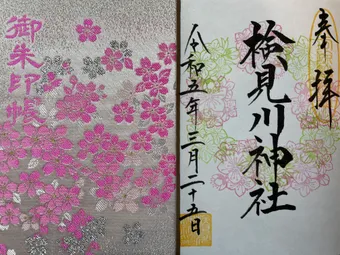 御朱印帳
奉拝
検見川神社
令和五年三月二十五日